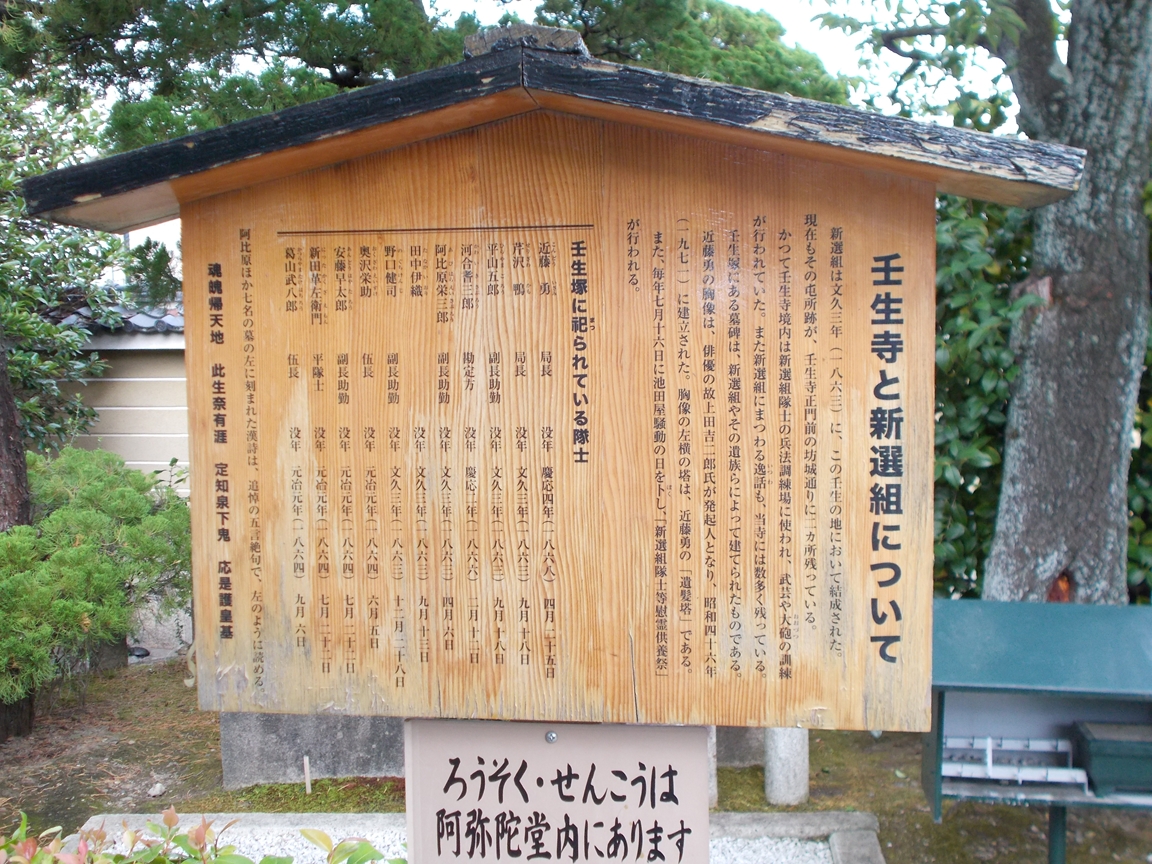 壬生寺と新選組について
新選組は文久三年（一八六三）に、この壬生の地において結成された。
現在もその屯所跡が、壬生寺正門前の坊城通りに二カ所残っている。
かつて壬生寺境内は新選組隊士の兵法調練場に使われ、武芸や大砲の訓練
が行われていた。また新選組にまつわる逸話も、当寺には数多く残っている。
壬生塚にある墓碑は、新選組やその遺族らによって建てられたものである。
近藤勇の胸像は、俳優の故上田吉二郎氏が発起人となり、昭和四十六年
（一九七一）に建立された。胸像の左横の塔は、近藤勇の「遺髪塔」である。
また、毎年七月十六日に池田屋騒動の日を卜し、「新選組隊士等慰霊供養祭」
が行われる。
壬生塚に祀られている隊士
近藤 勇 局長 没年 慶応四年（一八六八）四月二十五日
芹沢 鴨 局長 没年 文久三年（一八六三）九月十八日
平山五郎 副長助勤 没年 文久三年（一八六三）九月十八日
河合耆三郎 勘定方 没年 慶応二年（一八六六）二月十二日
阿比原栄三郎 副長助勤 没年 文久三年（一八六三）四月六日
田中伊織 没年 文久三年（一八六三）九月十三日
野口健司 副長助勤 没年 文久三年（一八六三）十二月二十八日
奥沢栄助 伍長 没年 元治元年（一八六四）六月五日
安藤早太郎 副長助勤 没年 元治元年（一八六四）七月二十二日
新田革左衛門 平隊士 没年 元治元年（一八六四）七月二十二日
葛山武八郎 伍長 没年 元治元年（一八六四）九月六日
阿比原ほか七名の墓の左に刻まれた漢詩は、追悼の五言絶句で、左のように読める。
魂魄帰天地 此生奈有涯 定知泉下鬼 応是護皇基
ろうそく・せんこうは
阿弥陀堂内にあります